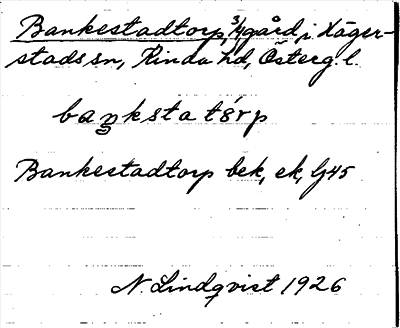 Bankestadtorp, 3/4 gård, i Häger-
stads sn, Kinda hd, Österg. l.
baŋksta tårp
Bankestadtorp bek, ek, G45
N. Lindqvist 1926